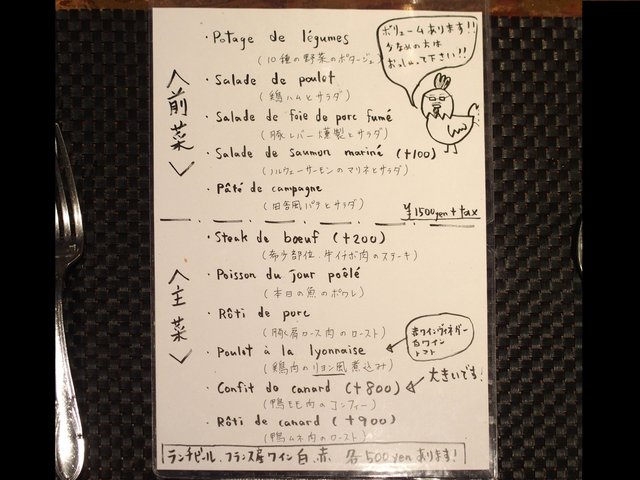 ボリュームあります!!
少なめの方は
おっしゃって下さい!!
<前菜>
・Potage de légumes
(10種の野菜のポタージュ)
・Salade de poulet
(鶏ハムとサラダ)
・Salade de foie de porc fumé
(豚レバー燻製とサラダ)
・Salade de saumon mariné (+100)
(ノルウェーサーモンのマリネとサラダ)
・Pâté de campagne
(田舎風パテとサラダ)
¥1500yen+tax
<主菜>
・Steak de bœuf (+200)
(希少部位、牛イチボ肉のステーキ)
・Poisson du jour poêlé
(本日の魚のポワレ)
・Rôti de porc
(豚肩ロース肉のロースト)
・Poulet à la lyonnaise
(鶏肉のリヨン風煮込み)
赤ワインヴィネガー
白ワイン
トマト
・Confit de canard (+800)
大きいです!
(鴨もも肉のコンフィー)
・Rôti de canard (+900)
(鴨ムネ肉のロースト)
ランチビール、フランス産ワイン 白、赤 各500yenあります!